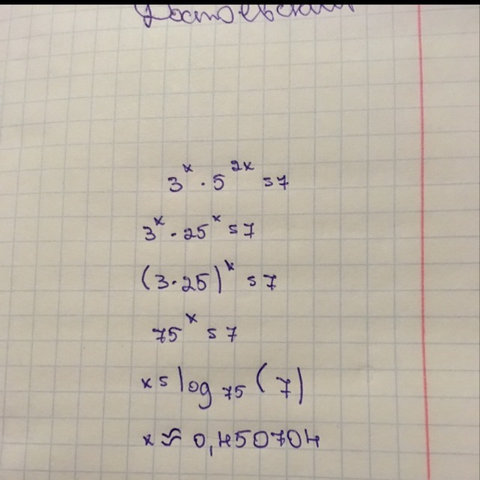 Достоевский
3^x · 5^{2x} = 7
3^x · 25^x = 7
(3 · 25)^x = 7
75^x = 7
x = log_{75} (7)
x ≈ 0,450704